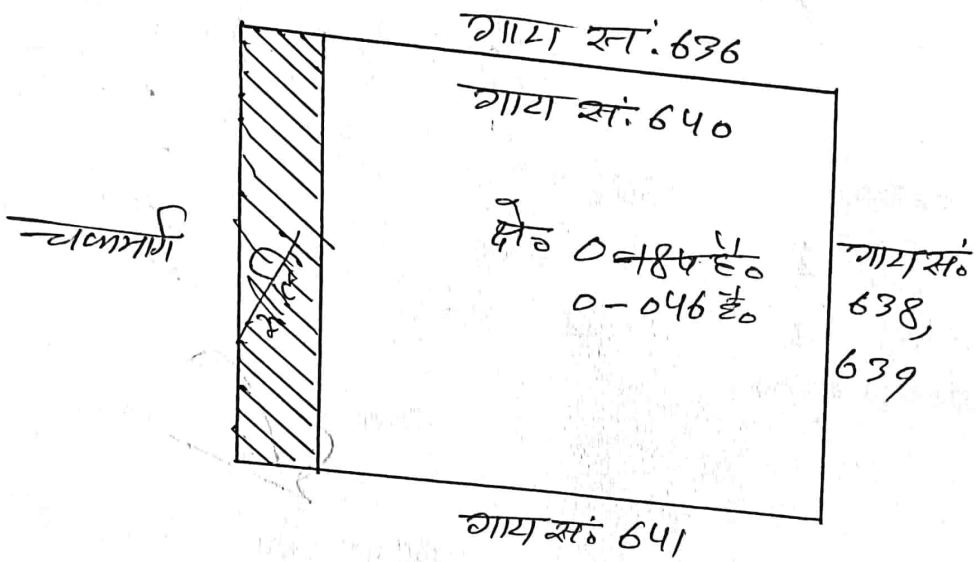 गाटा सं. 636
गाटा सं. 640
चकमार्ग
क्षे० 0-184 हे०
0-046 हे०
गाटा सं०
638,
639
गाटा सं० 641